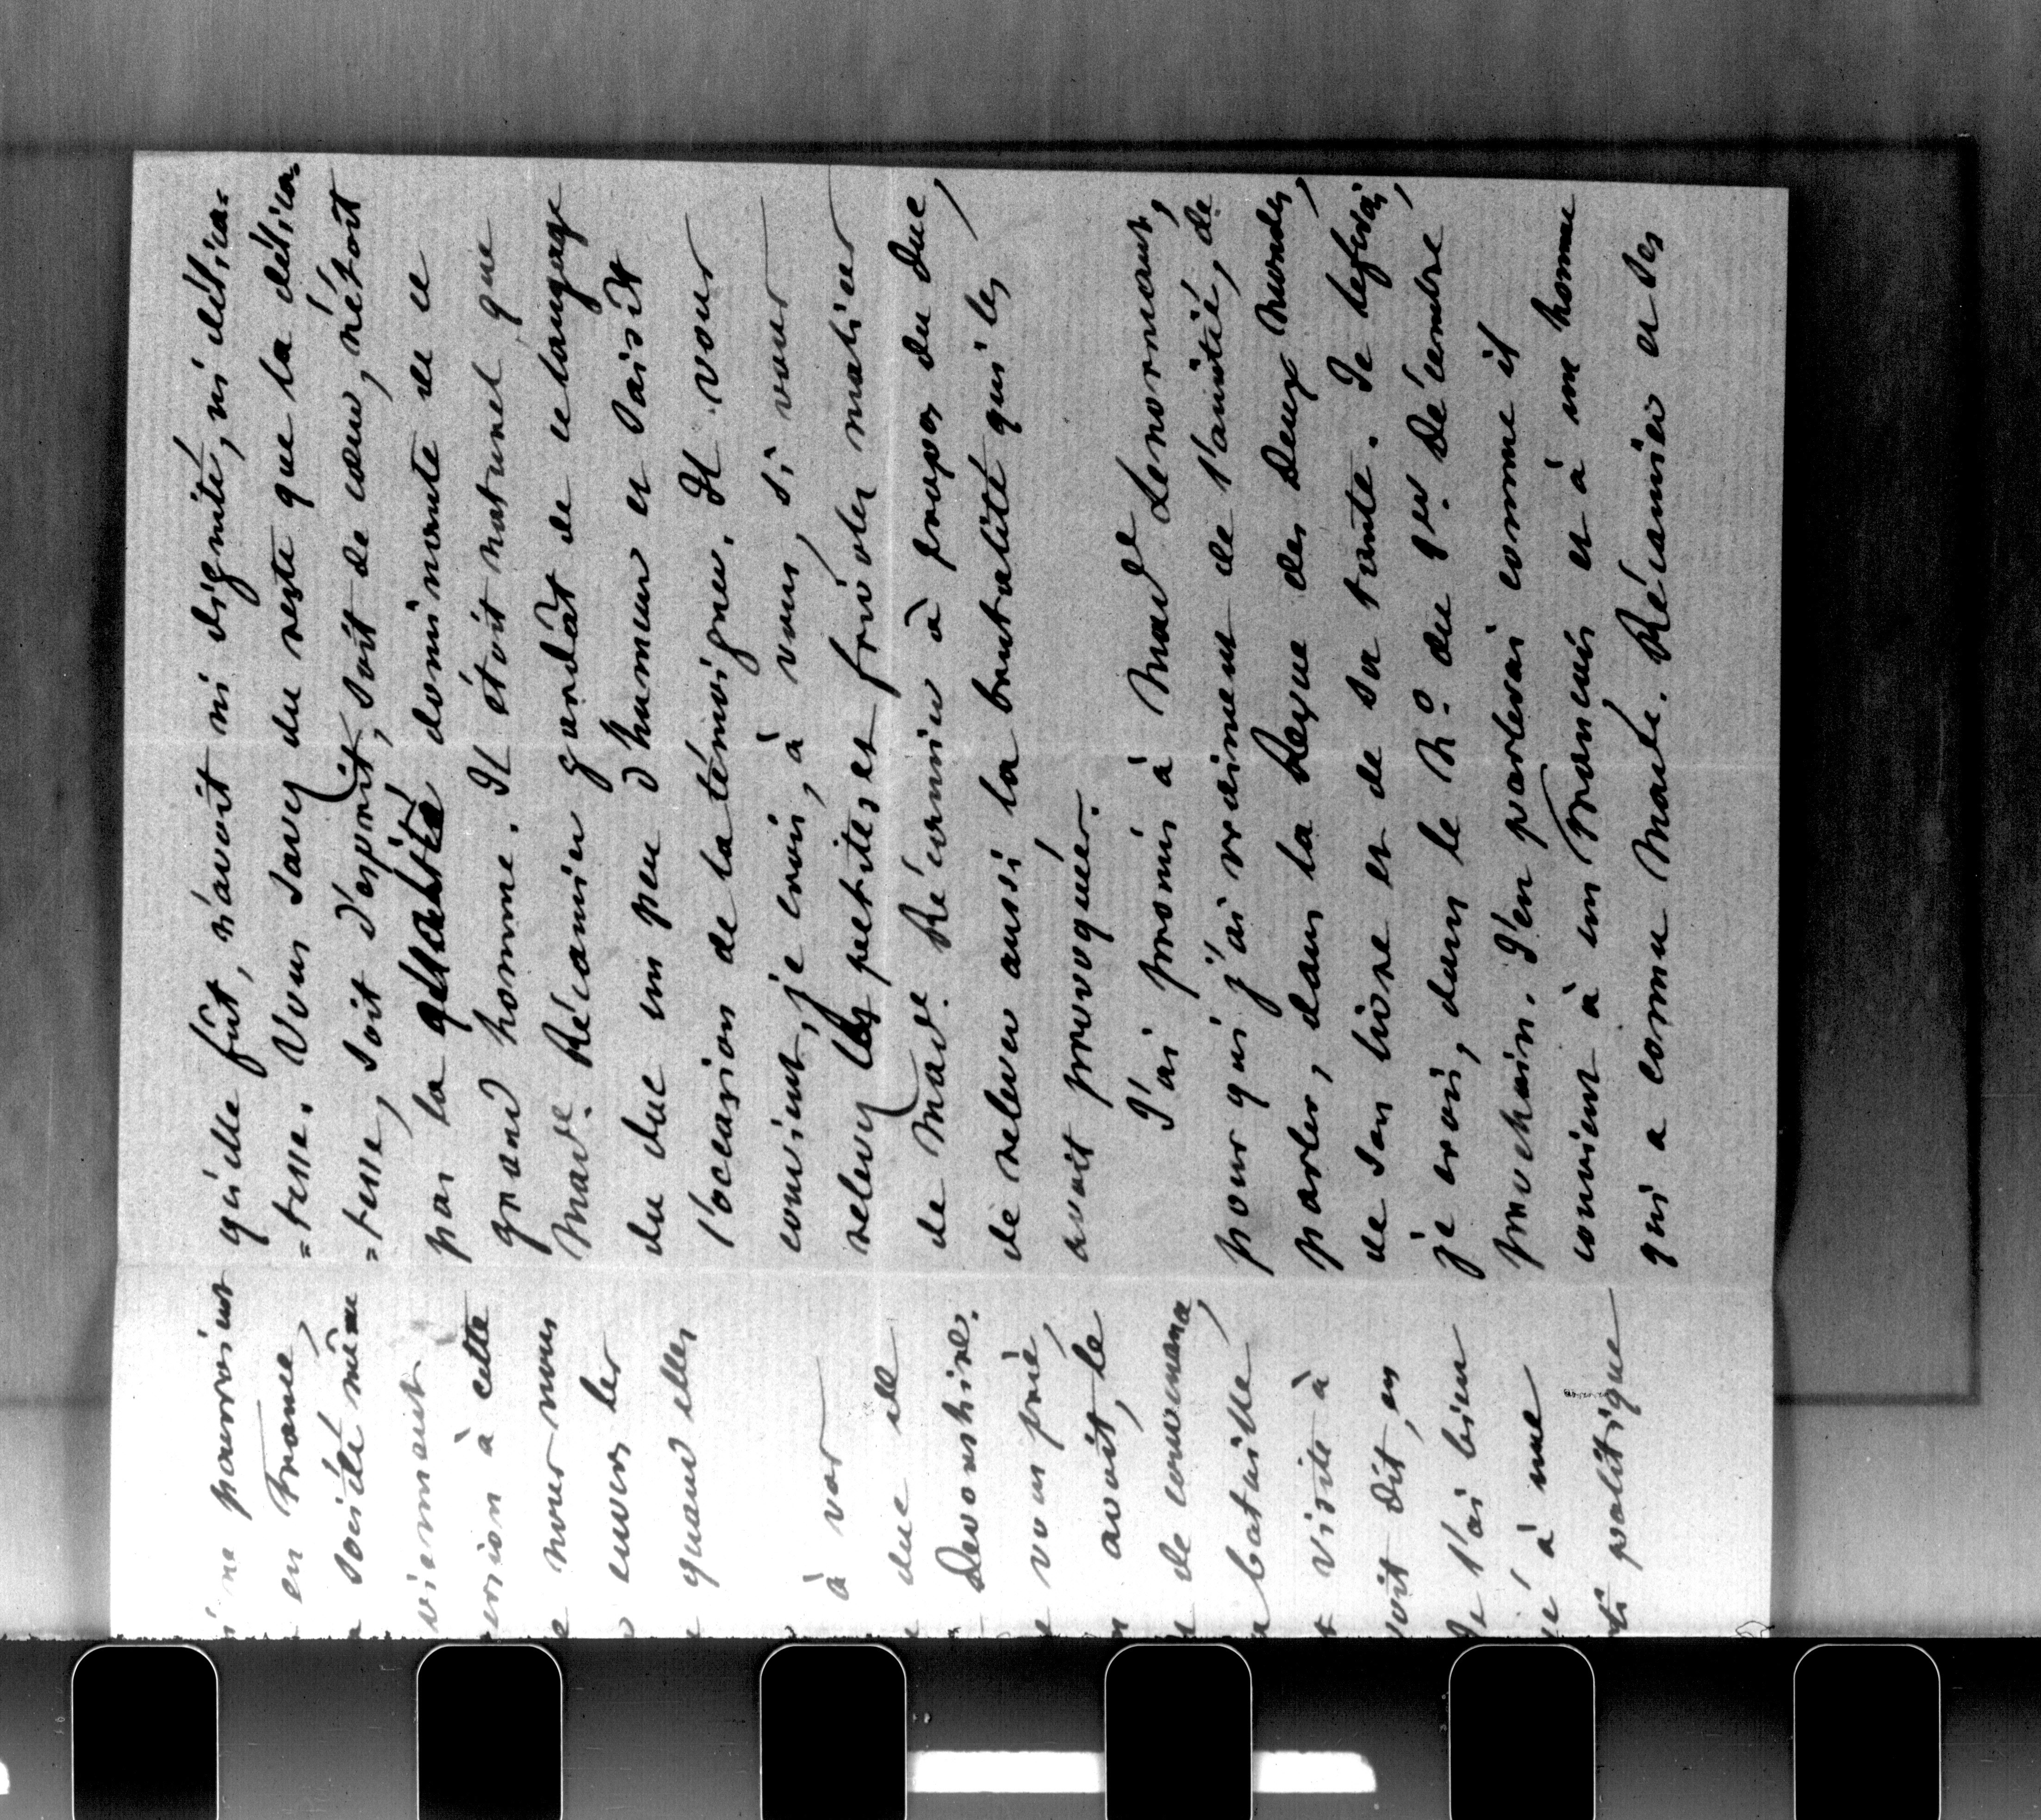 ne pourroient
en France,
société même
viennent
version à cette
nous
envers les
quand elles
à vos
duc et
Devonshire.
vous prie,
avoit, le
de convenance,
bataille,
visite à
soit dit, en
Je l'ai bien
à une
politique
qu'elle fût, n'avoit ni dignité, ni délica-
=tesse. Vous savez du reste que la délica-
=tesse, soit d'esprit, soit de cœur, n'étoit
pas la qualité dominante de ce
grand homme. Il étoit naturel que
Made. Récamier gardât de ce langage
du duc un peu d'humeur et saisît
l'occasion de la témoigner. Il vous
convient, je crois, à vous, si vous
relevez les petites et frivoles malices
de Made. Récamier à propos du duc,
de relever aussi la brutalité qui les
avoit provoquées.
J'ai promis à Made Lenormant,
pour qui j'ai vraiment de l'amitié, de
parler, dans la Revue des deux mondes,
de son livre et de sa tante. Je le ferai,
je crois, dans le No. du 1er. Décembre
prochain. J'en parlerai comme il
convient à un Français et à un homme
qui a connu Made. Récamier et ses